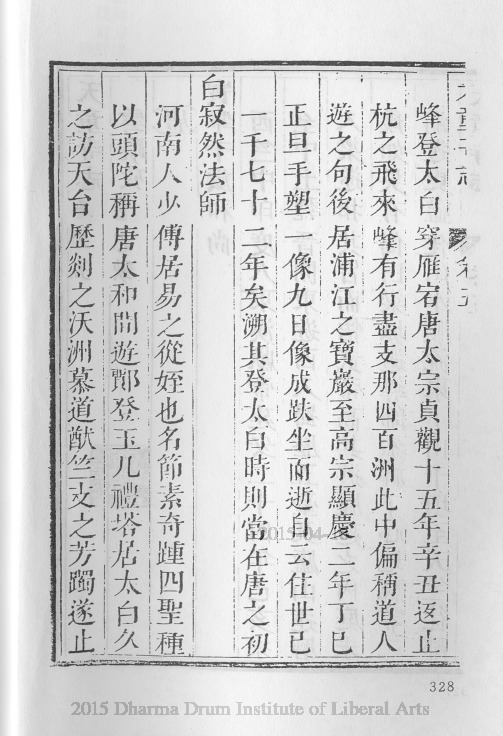 峰登太白穿雁宕唐太宗貞觀十五年辛丑返止
杭之飛來峰有行盡支那四百洲此中偏稱道人
遊之句後居浦江之寶巖至高宗顯慶二年丁巳
正旦手塑一像九日像成趺坐而逝自云住世已
一千七十二年矣溯其登太白時則當在唐之初
白寂然法師
河南人少傅居易之從姪也名節素奇踵四聖種
以頭陀稱唐太和間遊鄮登玉几禮塔居太白久
之訪天台歷剡之沃洲慕道猷竺支之芳躅遂止
328
2015-04-
2015 Dharma Drum Institute of Liberal Arts